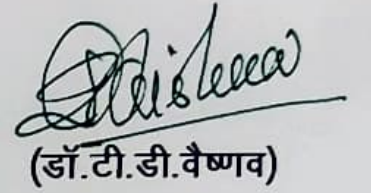 (डॉ.टी.डी.वैष्णव)